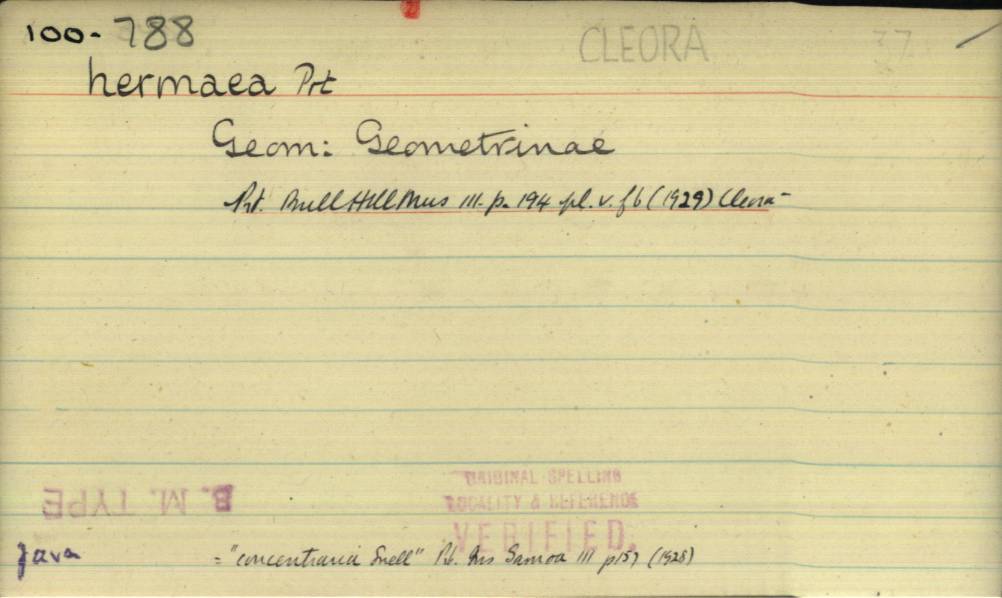 100-788 CLEORA 37
hermaea Prt
Geom: Geometrinae
Prt. Bull Hill Mus III. p. 194 pl. v. f6 (1929) Cleora-
B. M. TYPE
ORIGINAL SPELLING
LOCALITY & REFERENCE
VERIFIED.
Java = "concentraria Snell" Prt. Ins Samoa III p157 (1928)